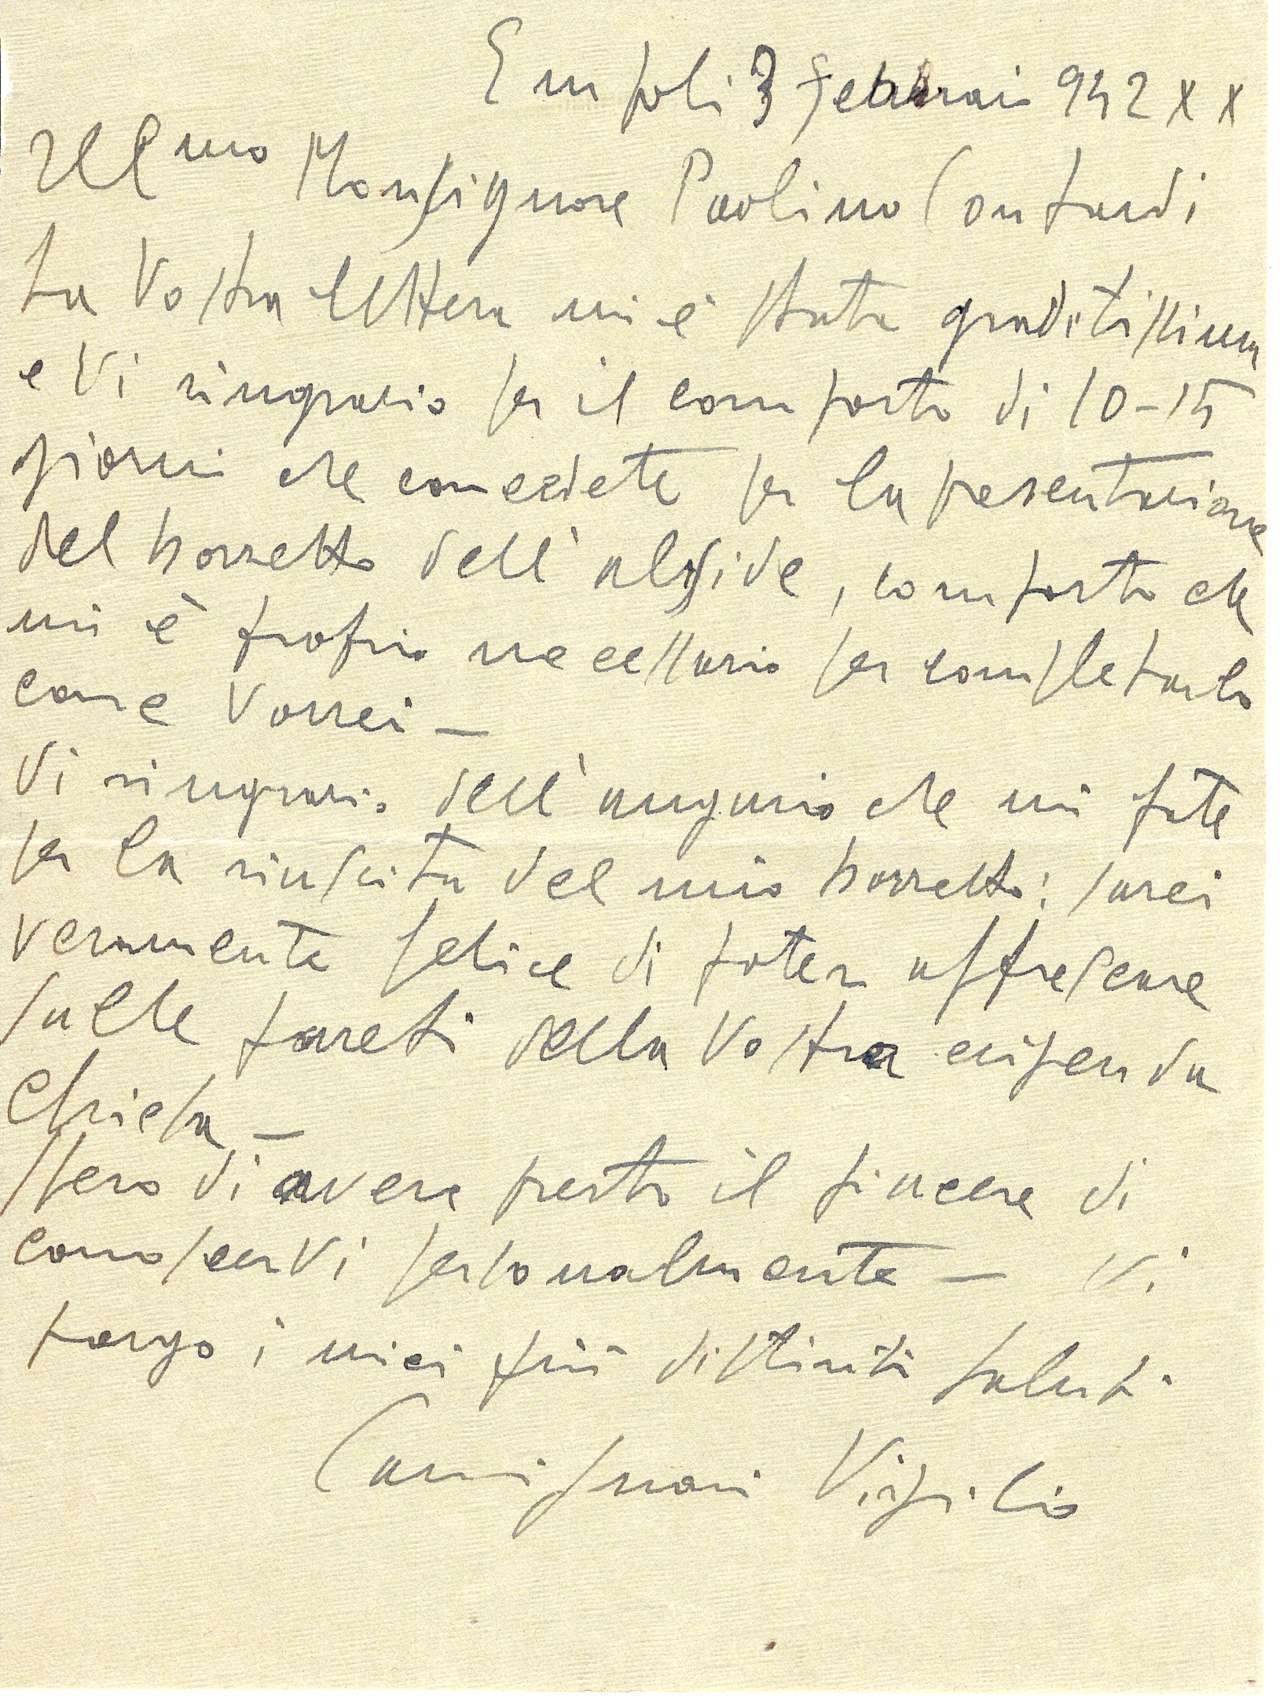 Empoli 3 febbraio 942 XX
Ill mo Monsignore Paolino Contardi
La Vostra lettera mi è stata graditissima
e Vi ringrazio per il comporto di 10-15
giorni che concedete per la presentazione
del bozzetto dell'abside, comporto che
mi è proprio necessario per completarlo
come vorrei —
Vi ringrazio dell'augurio che mi fate
per la riuscita del mio bozzetto: sarei
veramente felice di poter affrescare
sulle pareti della Vostra erigenda
Chiesa —
Spero di avere presto il piacere di
conoscervi personalmente — Vi
porgo i miei più distinti saluti
Carmignani Virgilio